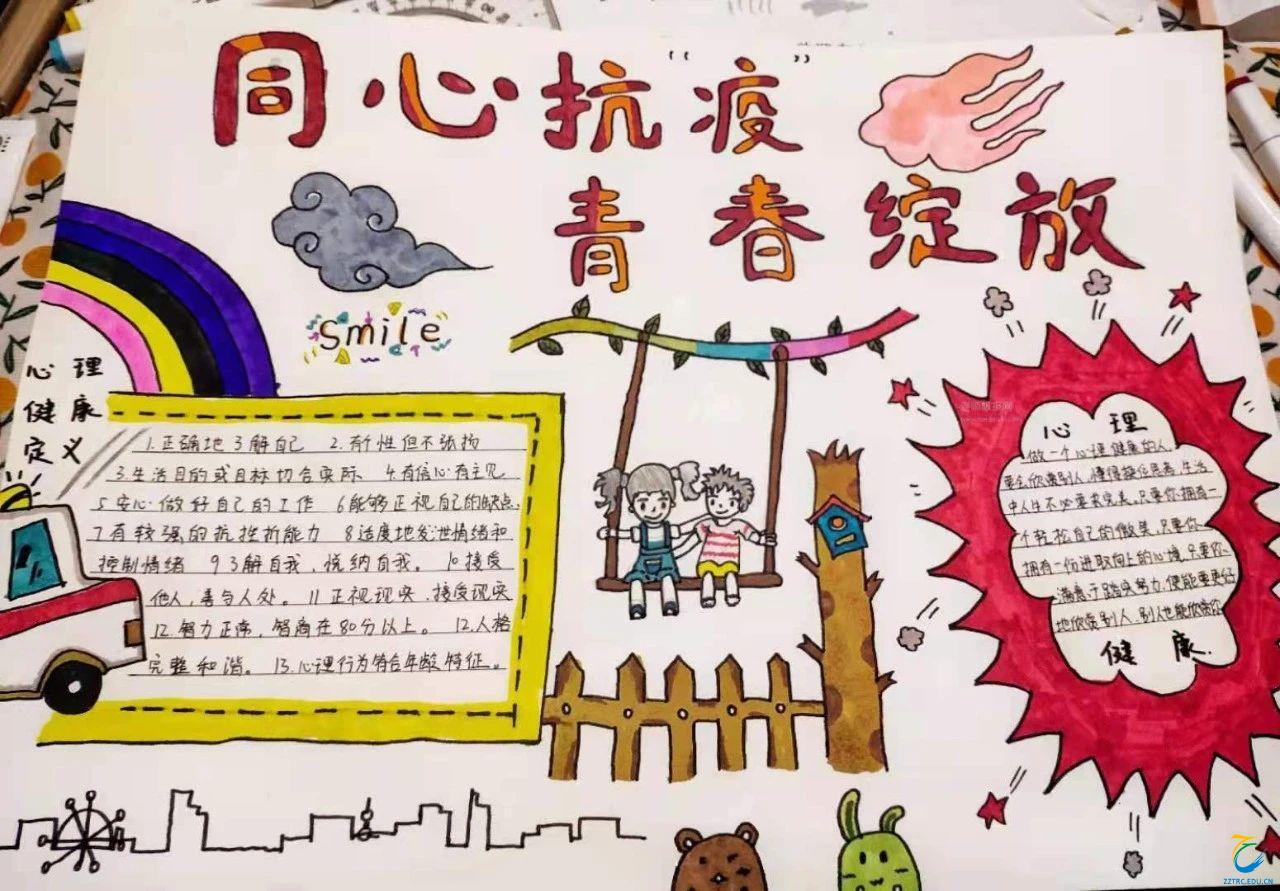 同心抗“疫”
青春绽放
Smile
心理
健康
定义
1.正确地了解自己 2.有个性但不张扬
3.生活目的或目标切合实际 4.有信心有主见
5安心做好自己的工作 6能够正视自己的缺点.
7有较强的抗挫折能力 8适度地发泄情绪和
控制情绪 9了解自我,悦纳自我。 10.接受
他人,善与人处。 11正视现实,接受现实
12.智力正常,智商在80分以上。 12.人格
完整和谐。 13.心理行为符合年龄特征。
心理
做一个心理健康的人,
要会欣赏别人,懂得 生活
中人生不必要求完美,只要你拥有一
个 自己的微笑,只要你
拥有一份进取向上的心境,只要你
满 于踏实努力,便能更好
地欣赏别人,别人也能欣赏你
健康.
ZZTRC.EDU.CN